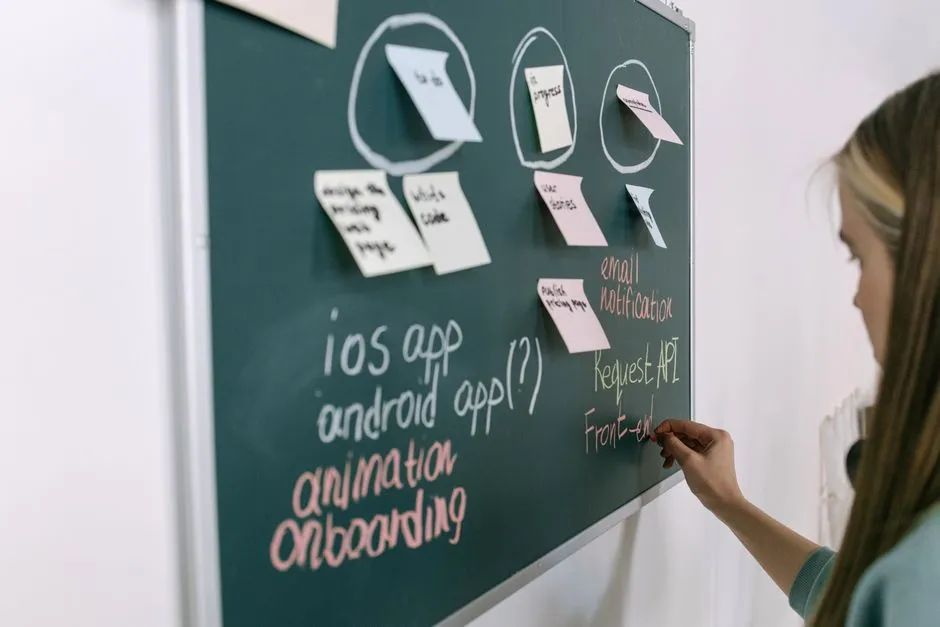 to do
in
progress
design the
pricing
web
page
write
code
user
stories
publish
pricing page
email
notification
ios app
android app(?)
Request API
Front-end
animation
onboarding